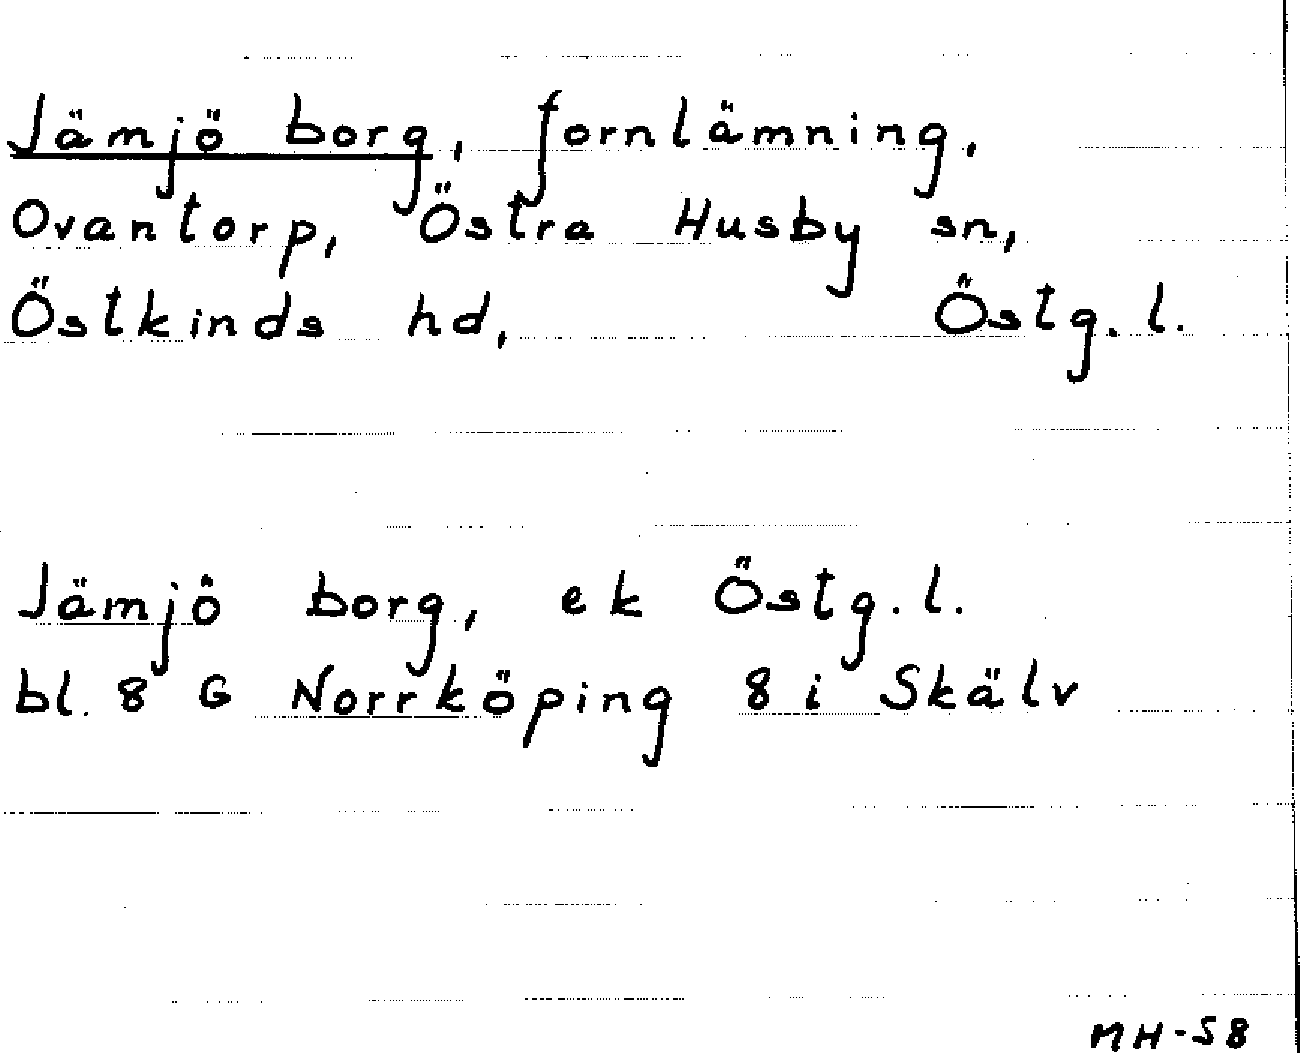 Jämjö borg, fornlämning,
Ovantorp, Östra Husby sn,
Östkinds hd, Östg.l.
Jämjö borg, ek Östg.l.
bl. 8 G Norrköping 8 i Skälv
MH-58